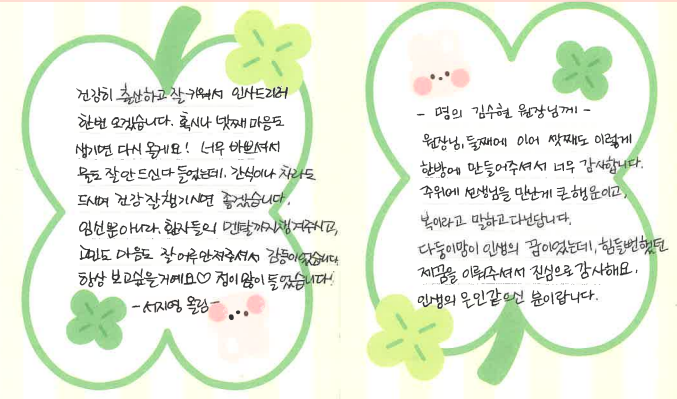 - 명의 김수현 원장님께 -
원장님, 둘째에 이어 셋째도 이렇게
한방에 만들어주셔서 너무 감사합니다.
주위에 선생님을 만난게 큰 행운이고,
복이라고 말하고 다닌답니다.
다둥이맘이 인생의 꿈이었는데, 힘들뻔했던
제꿈을 이뤄주셔서 진심으로 감사해요.
인생의 은인같으신 분이랍니다.
건강히 출산하고 잘 키워서 인사드리러
한번 오겠습니다. 혹시나 넷째 마음도
생기면 다시 올게요! 너무 바쁘셔서
물도 잘 안드신다 들었는데, 간식이나 차라도
드시며 건강 잘 챙기시면 좋겠습니다.
임신뿐아니라, 환자들의 멘탈까지 챙겨주시고,
몸도 마음도 잘 어루만져주셔서 감동이었습니다.
항상 보고싶을거예요♡ 정이 많이 들었습니다!
- 서지영 올림 -